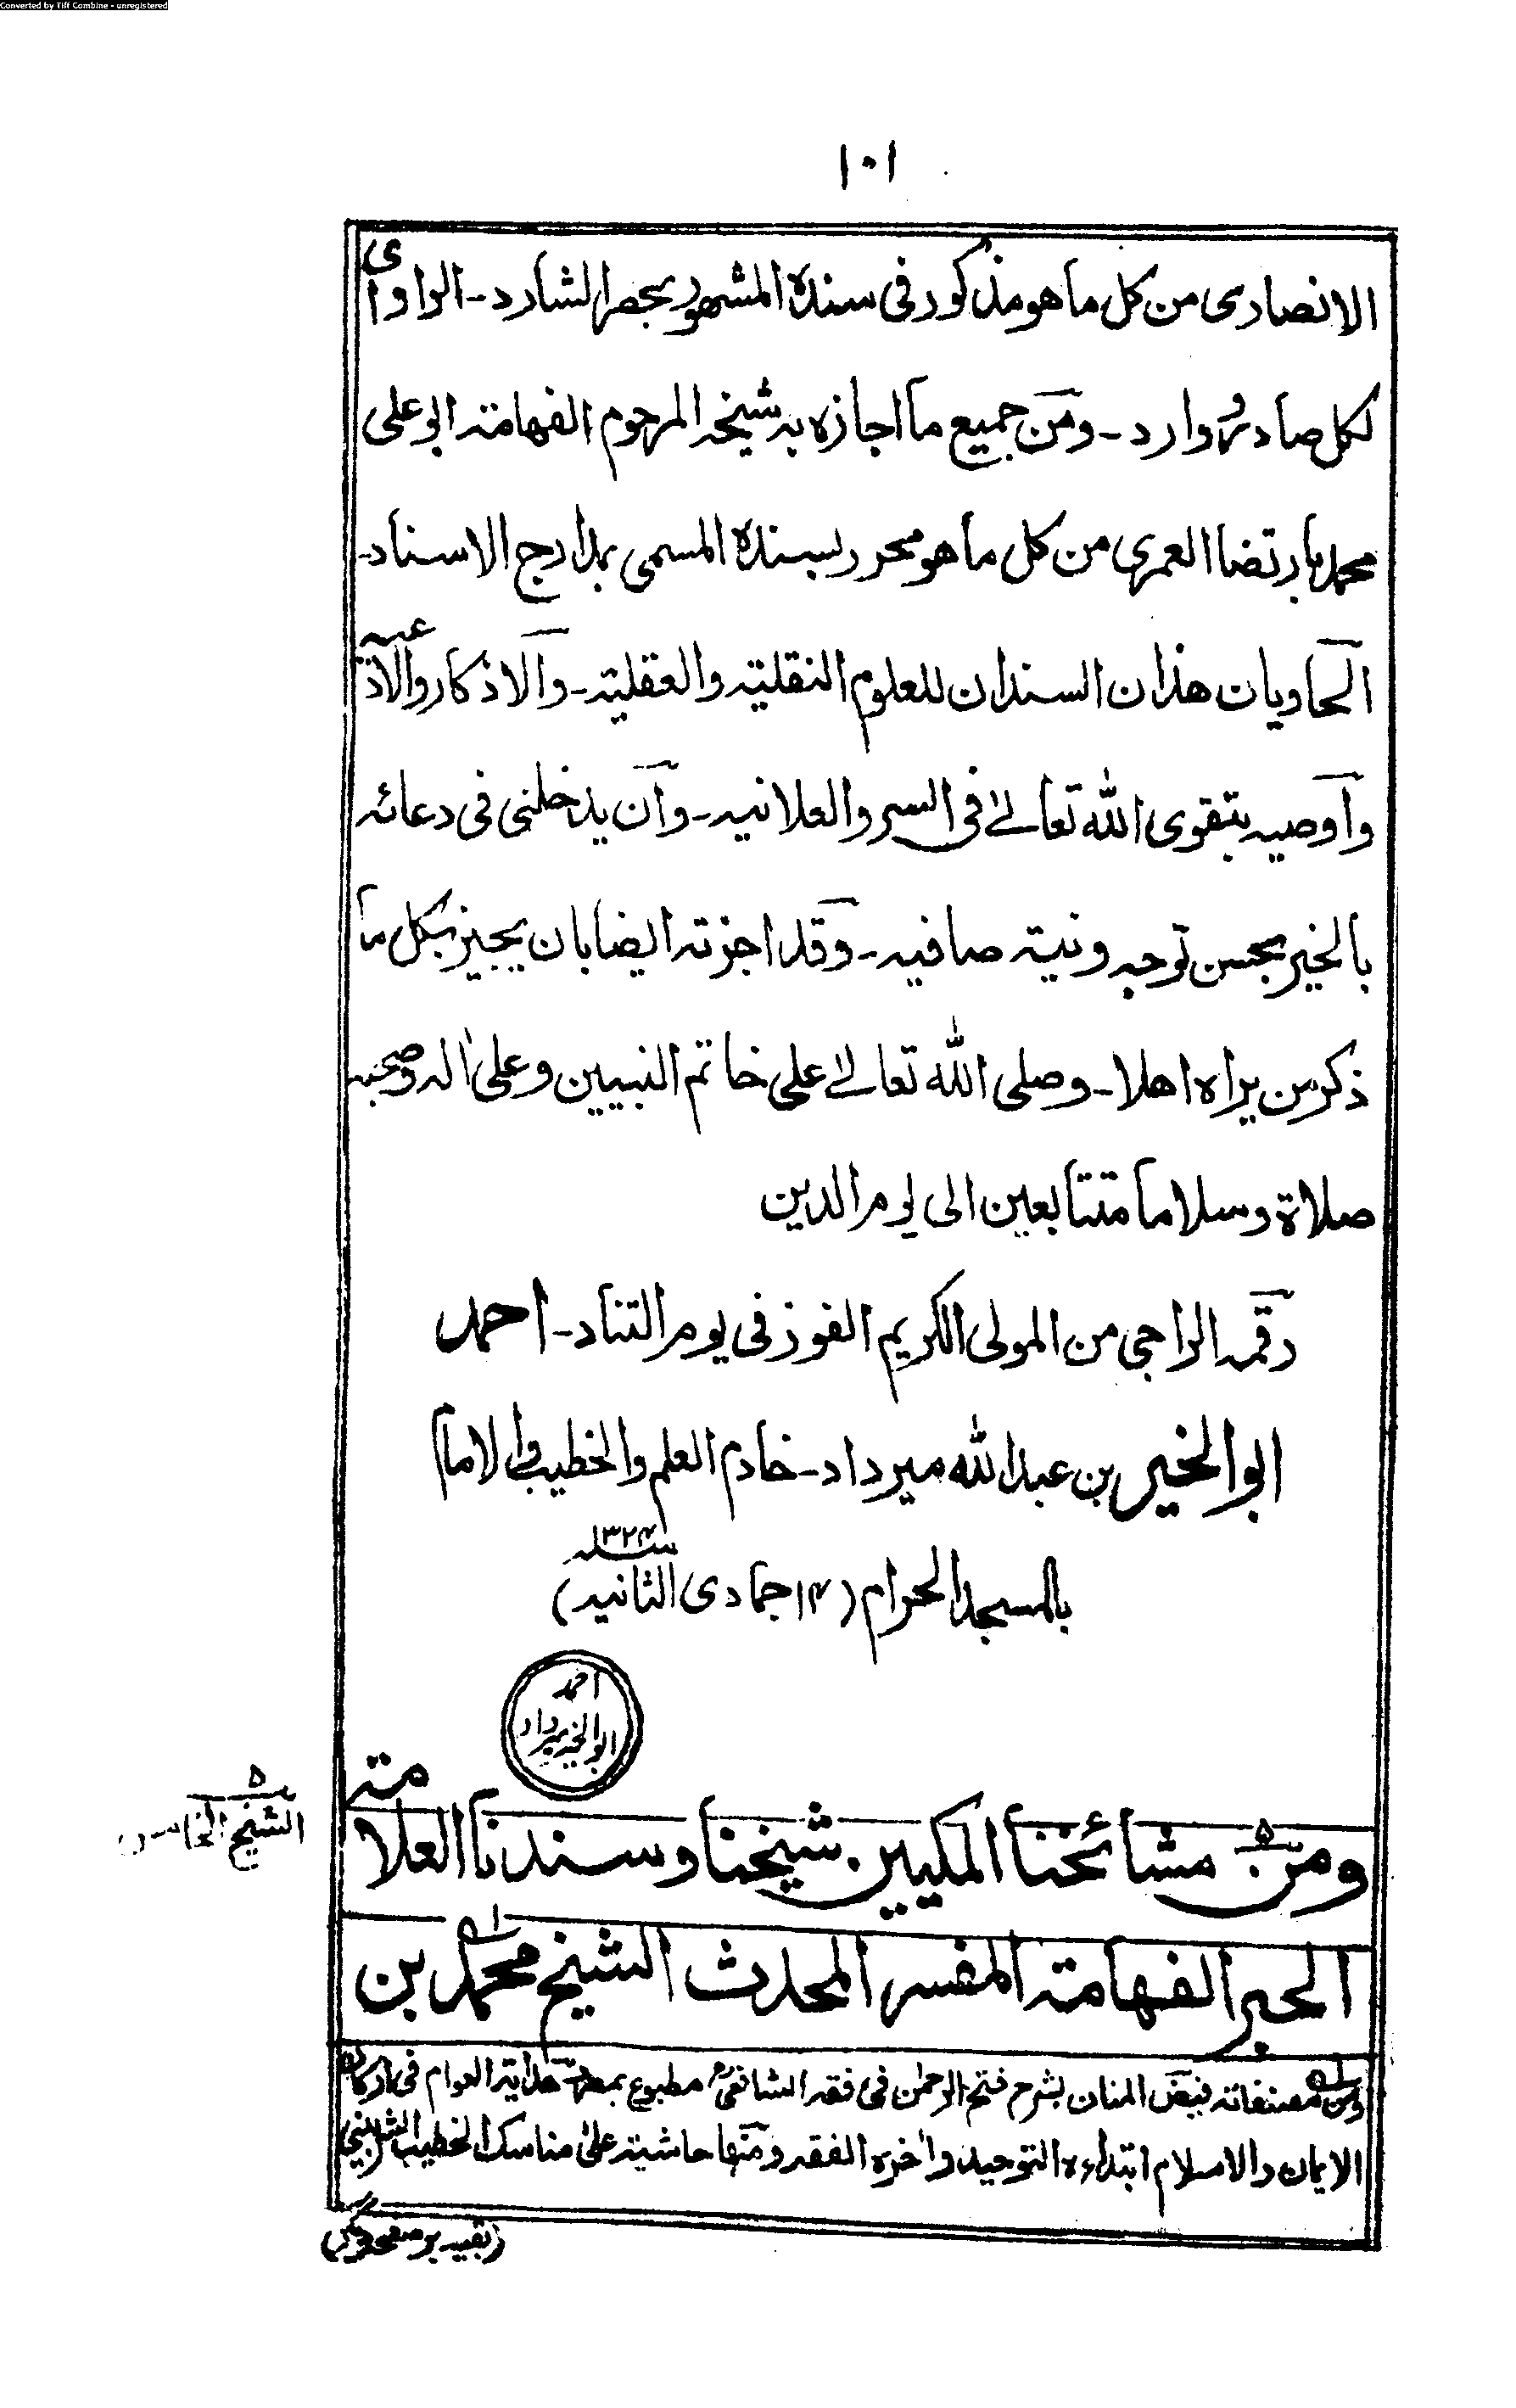 Converted by Tiff Combine - unregistered
١٠١
الانصاری من کل ما هو مذکور فی سندہ المشهور بحصر الشارد - الراوای
لکل صادر و وارد - ومن جمیع ما اجازہ به شیخه المرحوم الفهامة ابو علی
محمد ارتضا العمری من کل ما هو محرر بسندہ المسمی بمدارج الاسناد -
الحاویان هذان السندان للعلوم النقلیة والعقلیة - والاذکار والادعیة
واوصیه بتقوی الله تعالےٰ فی السر والعلانیه - وان یدخلنی فی دعائه
بالخیر بحسن توجه ونیة صافیه - وقد اجزته ایضا بان یجیز بکل ما
ذکر من یراہ اهلا - وصلی الله تعالےٰ علی خاتم النبیین وعلیٰ اٰله وصحبه
صلاة وسلاما متتابعین الی یوم الدین
رقمه الراجی من المولی الکریم الفوز فی یوم التناد - احمد
ابو الخیر بن عبد الله میرداد - خادم العلم والخطیب والامام
بالمسجد الحرام (۱۴ جمادی الثانیه) ۱۳۲۴ سنه
احمد
ابو الخیر میرداد
الشیخ الخامس ۵
ومن ۵ مشائخنا المکیین شیخنا وسندنا العلامة
الحبر الفهامة المفسر المحدث الشیخ محمد بن
ومن مصنفاته فیض المنان بشرح فتح الرحمٰن فی فقه الشافعی مطبوع بمصر هدایة العوام فی ارکان
الایمان والاسلام ابتداءہ التوحید واٰخرہ الفقه ومنها حاشیة علیٰ مناسک الخطیب الشربینی
(بقیه بر صفحه دیگر)